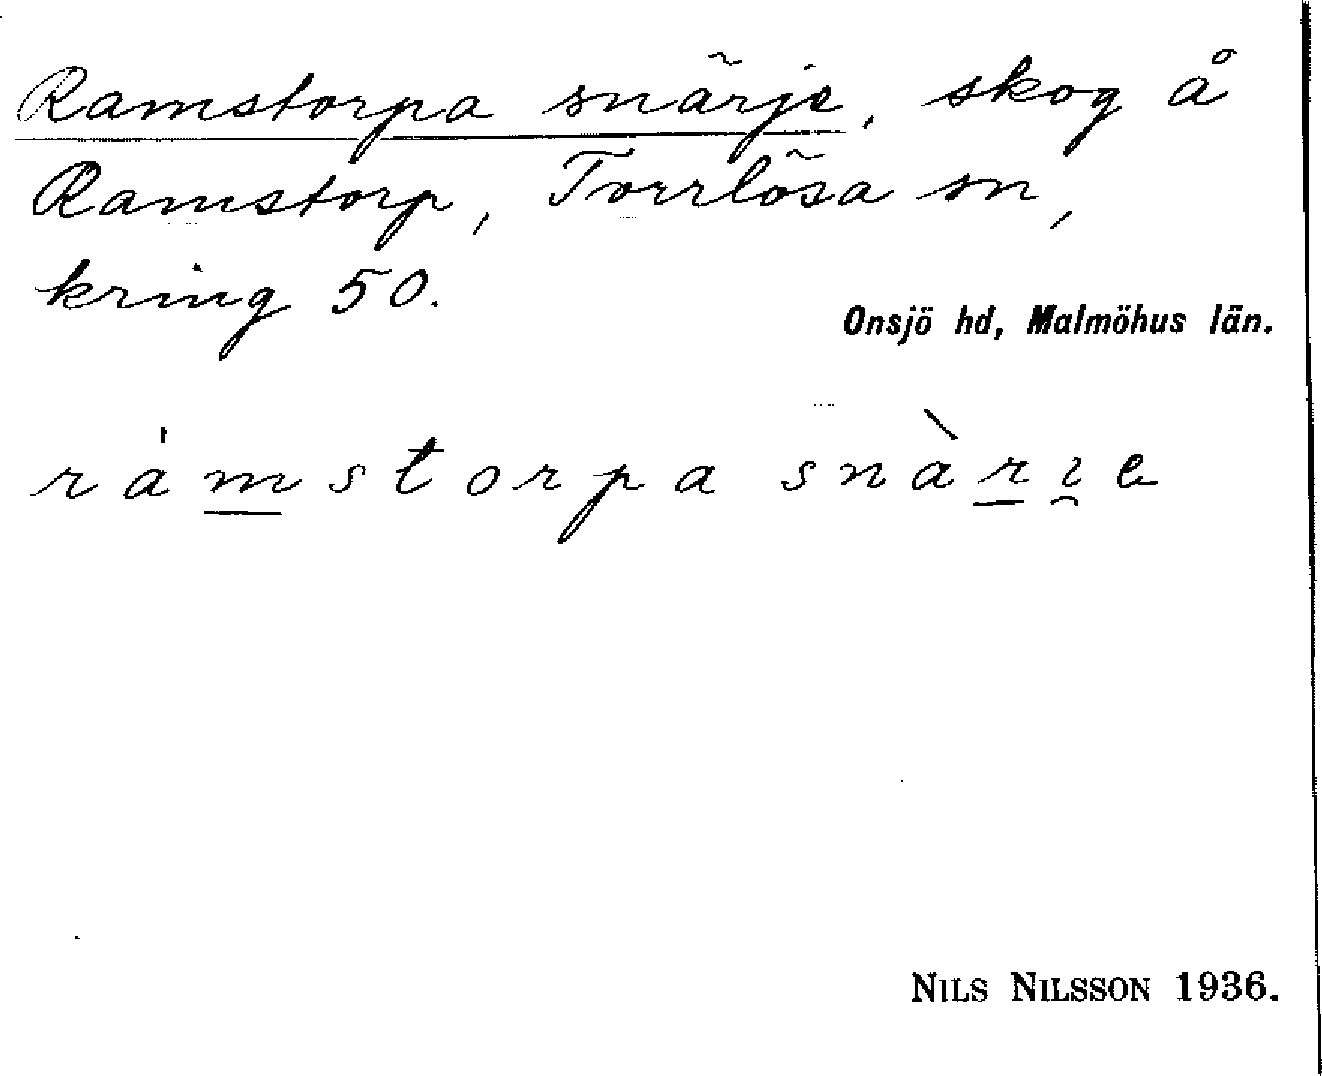 Ramstorpa snärje, skog å
Ramstorp, Torrlösa sn,
kring 50.
Onsjö hd, Malmöhus län.
rámstorpa snàri̯e
NILS NILSSON 1936.